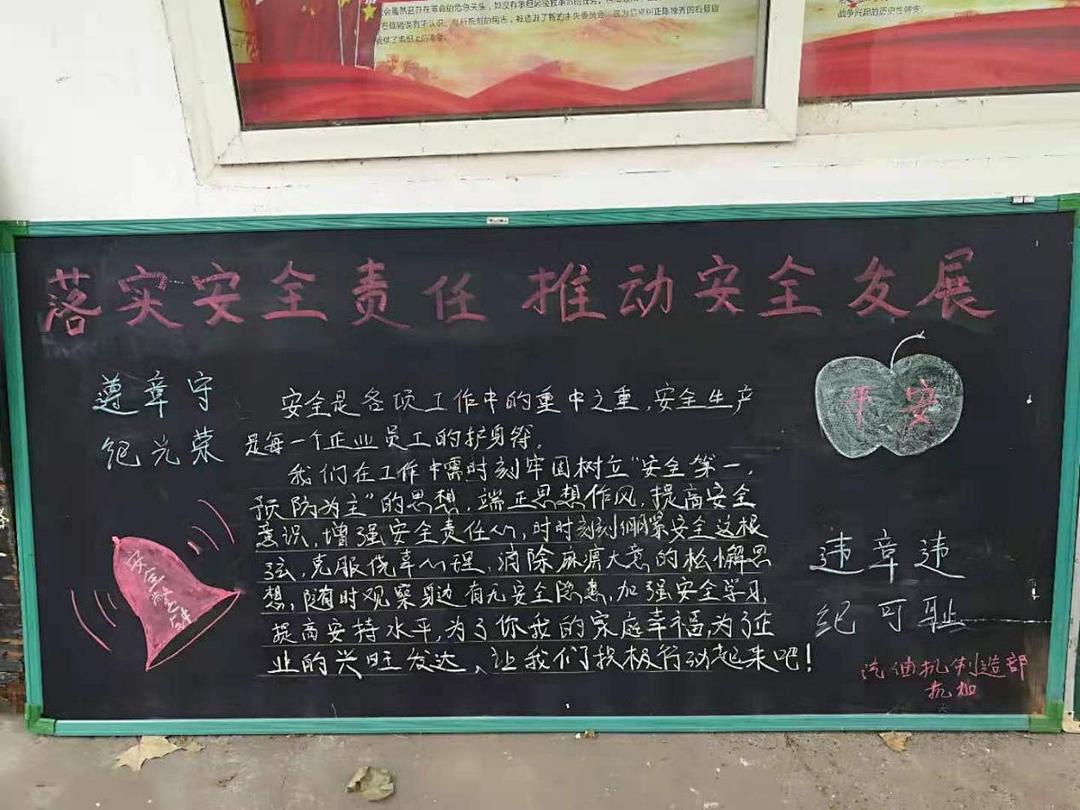 战争兴起的历史性转变。
落实安全责任 推动安全发展
遵章守
纪光荣
安全是各项工作中的重中之重,安全生产
是每一个企业员工的护身符。
我们在工作中需时刻牢固树立“安全第一,
预防为主”的思想,端正思想作风,提高安全
意识,增强安全责任心,时时刻刻绷紧安全这根
弦,克服侥幸心理,消除麻痹大意的松懈思
想,随时观察身边有无安全隐患,加强安全学习,
提高安持水平,为了你我的家庭幸福,为了企
业的兴旺发达、让我们积极行动起来吧!
安全
平安
违章违
纪可耻
汽油机制造部